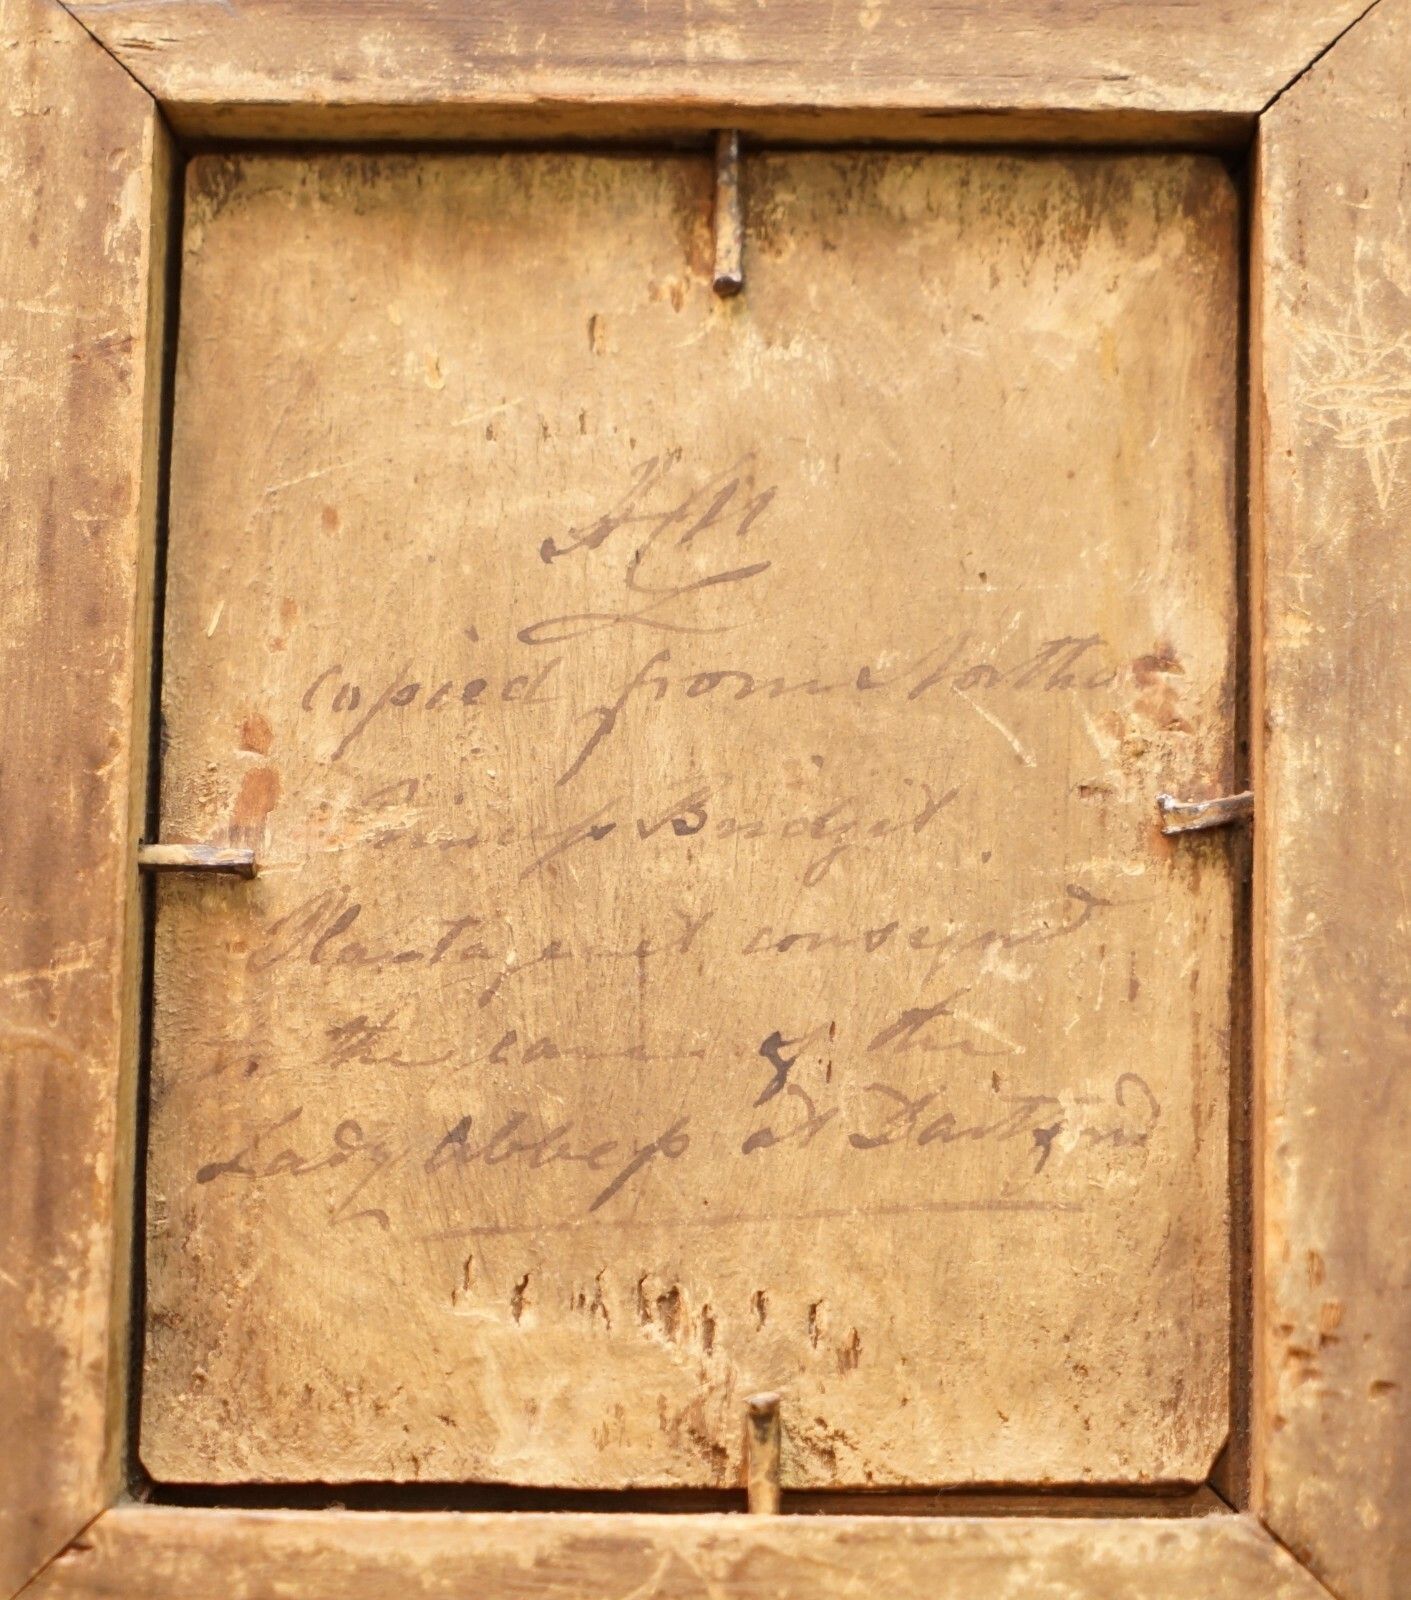 copied from
Princess Bridget
Plantagenet consign'd
to the care of the
Lady Abbess at Dartford